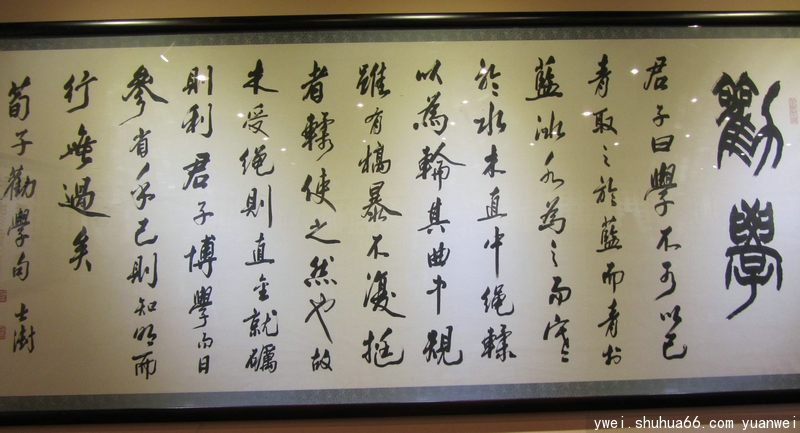 勸學
君子曰學不可以已
青取之於藍而青於
藍冰水為之而寒
於水木直中繩輮
以為輪其曲中規
雖有槁暴不復挺
者輮使之然也故
木受繩則直金就礪
則利君子博學而日
參省乎己則知明而
行無過矣
荀子勸學句 士澍
ywei.shuhua66.com yuanwei